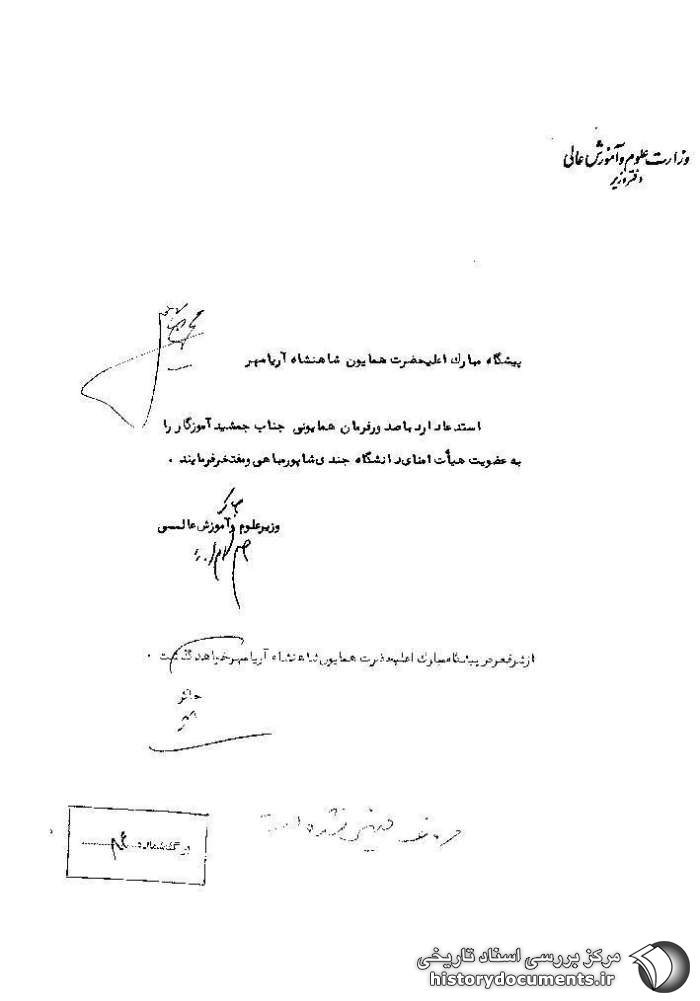 وزارت علوم و آموزش عالی
دفتر وزیر
پیشگاه مبارك اعلیحضرت همایون شاهنشاه آریامهر
استدعا دارد با صدور فرمان همایونی جناب جمشید آموزگار را
به عضویت هیأت امنای دانشگاه جندی شاپور مباهی و مفتخر فرمایند .
وزیر علوم و آموزش عالی
از شرفعرض پیشگاه مبارك اعلیحضرت همایون شاهنشاه آریامهر خواهد گذشت .
برگ شماره
مرکز بررسی اسناد تاریخی
historydocuments.ir